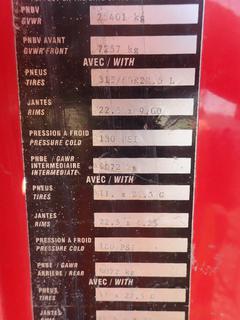 PNBV
GVWR
25401 kg
PNBV AVANT
GVWR FRONT
7257 kg
AVEC / WITH
PNEUS
TIRES
315/80R22.5 L
JANTES
RIMS
22.5 x 9.00
PRESSION A FROID
PRESSURE COLD
130 PSI
PNBE / GAWR
INTERMÉDIAIRE
INTERMEDIATE
9072 kg
AVEC / WITH
PNEUS
TIRES
22.5 G
JANTES
RIMS
22.5 x 8.25
PRESSION A FROID
PRESSURE COLD
PSI
PNBE / GAWR
ARRIÈRE / REAR
9072 kg
AVEC / WITH
PNEUS
TIRES
22.5 G
JANTES